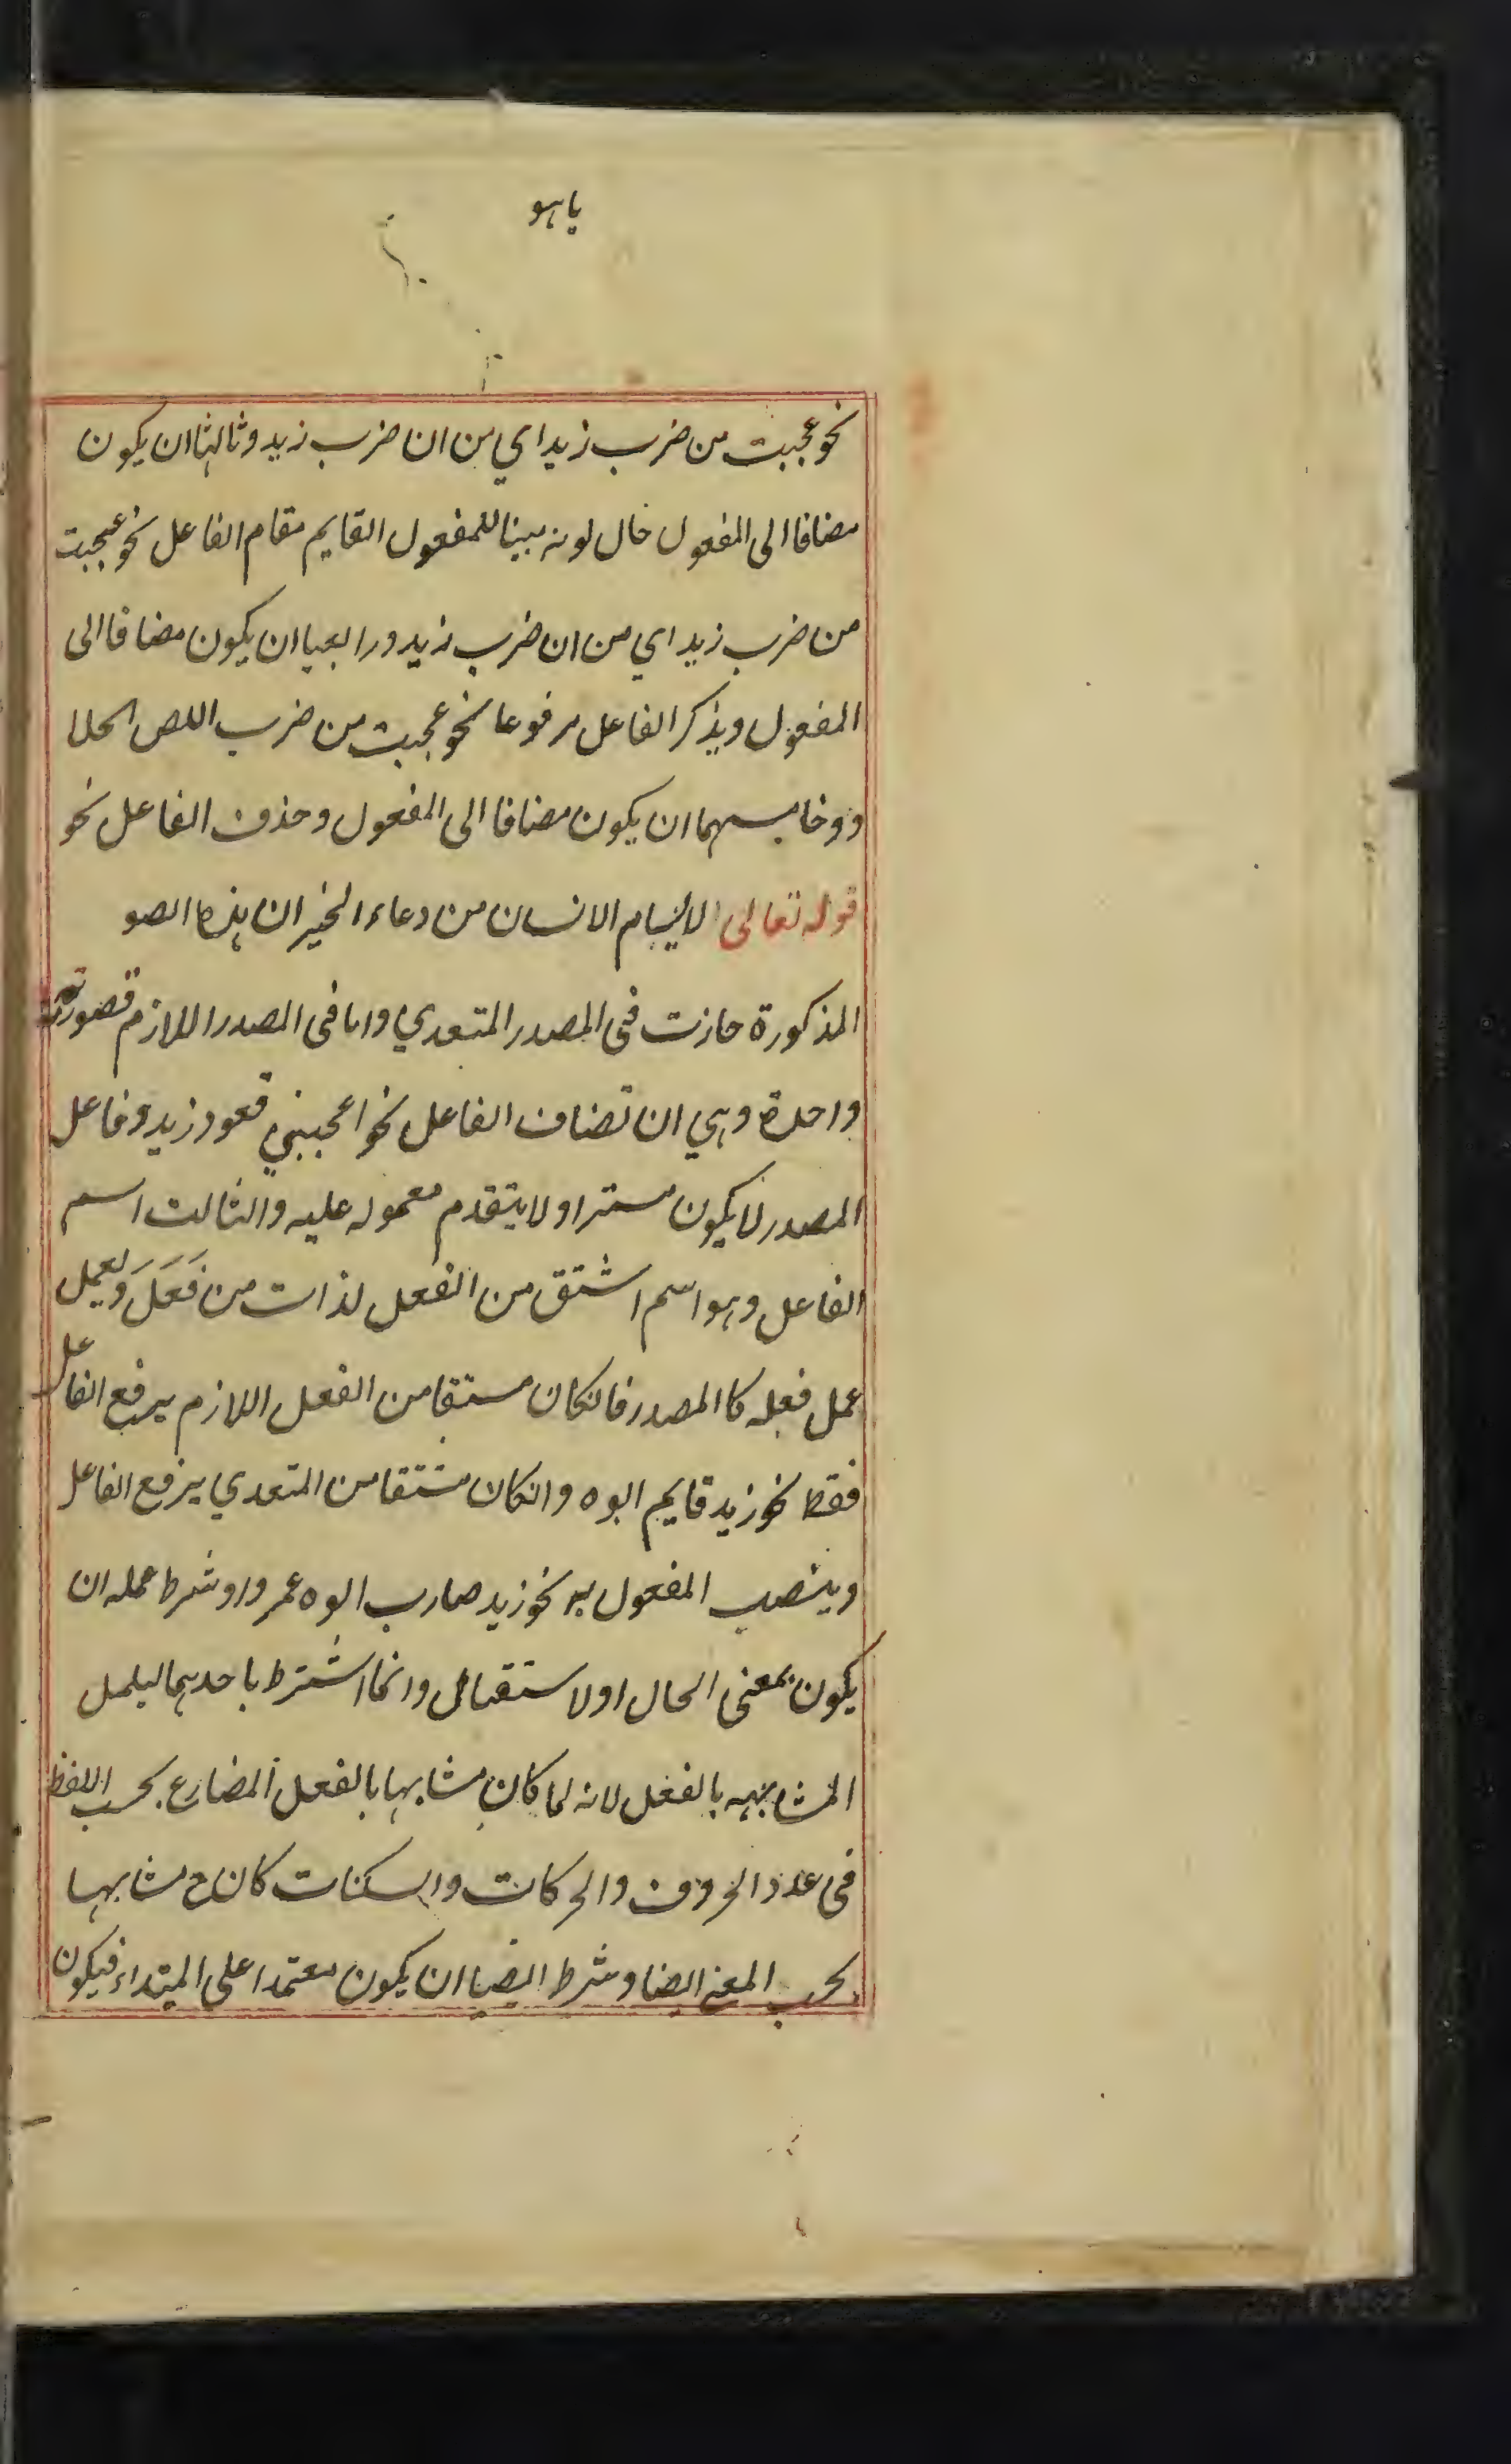 یا ہو
نحو عجبت من ضرب زيد اي من ان ضرب زيد وثالثها ان يكون
مضافا الى المفعول حال لونه مبنيا للمفعول القايم مقام الفاعل نحو عجبت
من ضرب زيد اي من ان ضرب زيد ورابعها ان يكون مضافا الى
المفعول ويذكر الفاعل مرفوعا نحو عجبت من ضرب اللص الجلا
د وخامسهما ان يكون مضافا الى المفعول وحذف الفاعل نحو
قوله تعالى لا يسام الانسان من دعاء الخير ان هذه الصو
المذكورة جازت فى المصدر المتعدي واما فى المصدر اللازم فصورته
واحدة وهي ان تضاف الفاعل نحو اعجبني قعود زيد وفاعل
المصدر لا يكون مستترا ولا يتقدم معموله عليه والثالث اسم
الفاعل وهو اسم اشتق من الفعل لذات من فَعَلَ ويعمل
عمل فعله كا المصدر فانكان مستقا من الفعل اللازم يرفع الفاعل
فقط نحو زيد قايم ابوه وانكان مشتقا من المتعدي يرفع الفاعل
وينصب المفعول به نحو زيد ضارب ابوه عمروا وشرط عمله ان
يكون بمعنى الحال اولاستقبال وانما اشترط باحدهما ليلمل
المشابهه بالفعل لانه لما كان مشابها بالفعل المضارع بحسب اللفظ
فى عدد الحروف والحركات والسكنات كان ح مشابها
بحسب المعنى ايضا وشرط ايضا ان يكون معتمدا على المبتداء فيكون